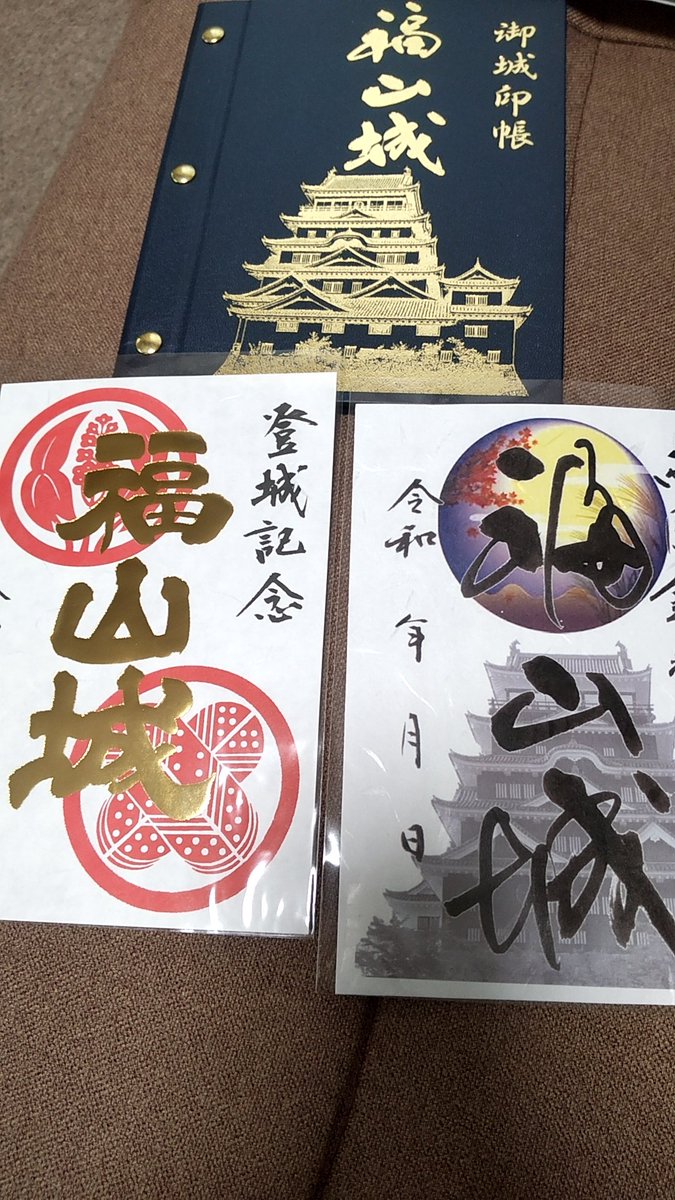 御城印帳
福山城
登城記念
福山城
福山城
令和 年 月 日